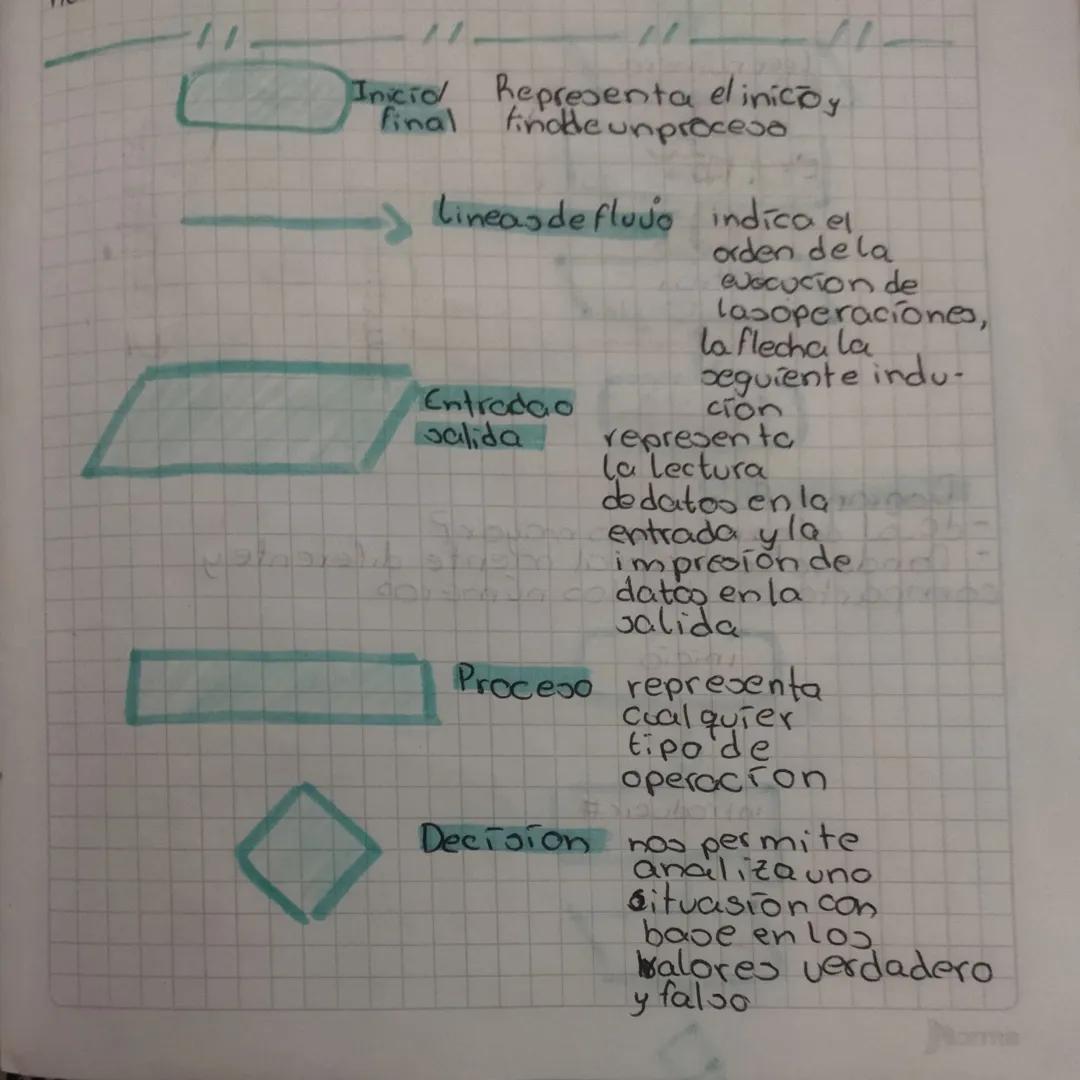 Inicio/ Representa el inicio y
final fin de un proceso
Lineas de flujo indica el
orden de la
ejecucion de
las operaciones,
la flecha la
seguiente indu-
cion
Entrada o
salida representa
la lectura
de datos en la
entrada y la
impresion de
datos en la
salida
Proceso representa
cualquier
tipo de
operacion
Decision nos permite
analiza uno
situasion con
base en los
valores verdadero
y falso
Norma